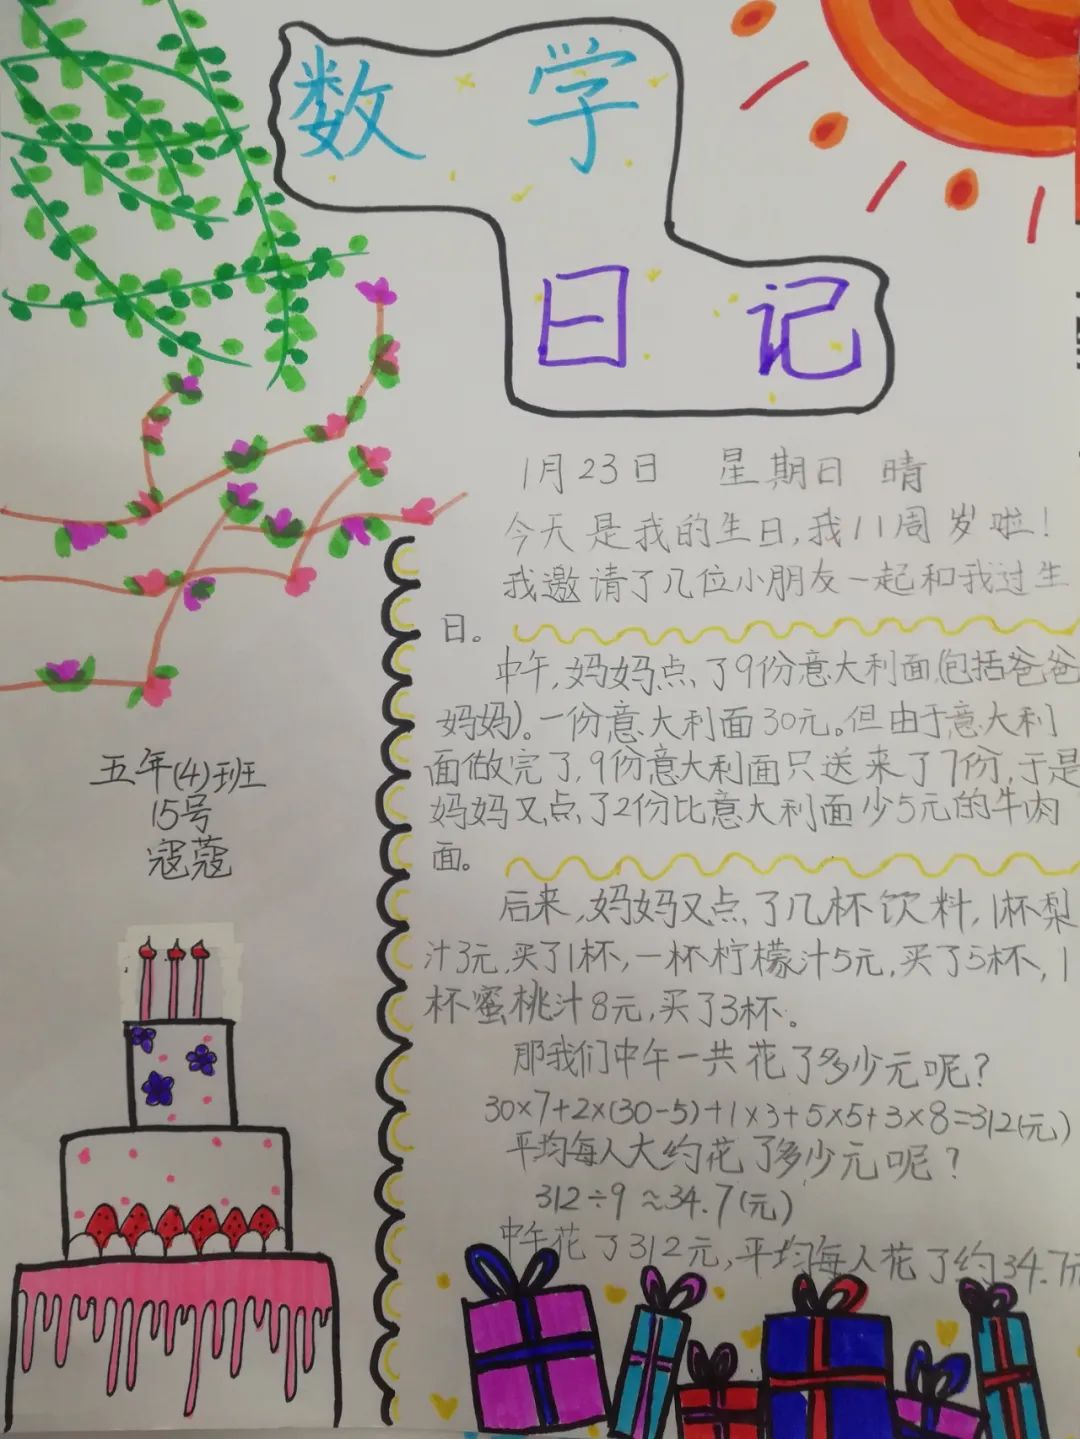 数学
日记
1月23日 星期日 晴
今天是我的生日,我11周岁啦!
我邀请了几位小朋友一起和我过生
日。
中午,妈妈点了9份意大利面(包括爸爸
妈妈)。一份意大利面30元。但由于意大利
面做完了,9份意大利面只送来了7份,于是
妈妈又点了2份比意大利面少5元的牛肉
面。
后来,妈妈又点了几杯饮料,1杯梨
汁3元,买了1杯,一杯柠檬汁5元,买了5杯,1
杯蜜桃汁8元,买了3杯。
那我们中午一共花了多少元呢?
30×7+2×(30-5)+1×3+5×5+3×8=312(元)
平均每人大约花了多少元呢?
312÷9≈34.7(元)
中午花了312元,平均每人花了约34.7元
五年(4)班
15号
寇蔻